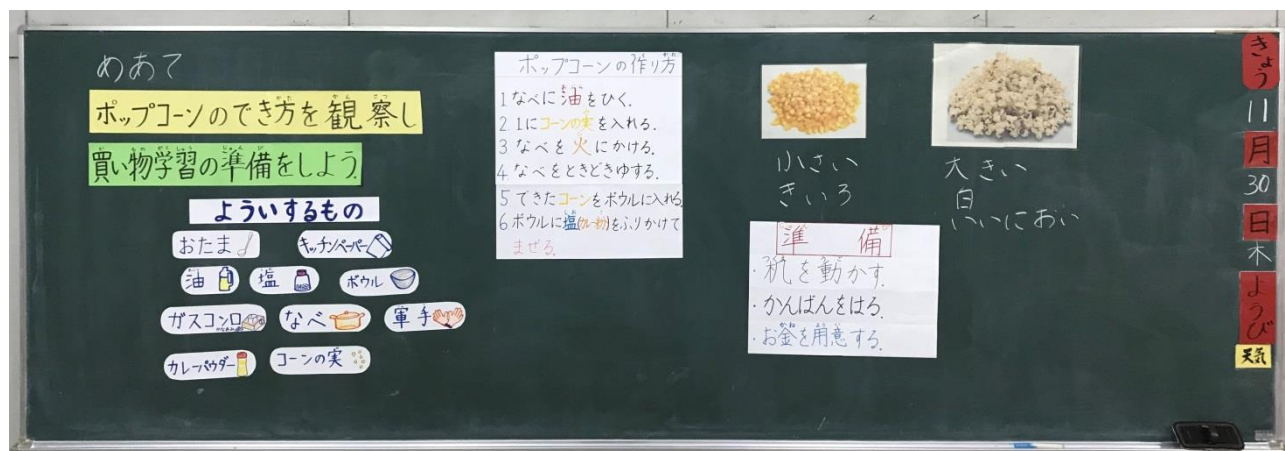 めあて
ポップコーンのでき方を観察し
買い物学習の準備をしよう。
よういするもの
おたま
キッチンペーパー
油
塩
ボウル
ガスコンロ
なべ
軍手
カレーパウダー
コーンの実
ポップコーンの作り方
1なべに油をひく。
2. 1にコーンの実を入れる。
3 なべを火にかける。
4. なべをときどきゆする。
5 できたコーンをボウルに入れる
6 ボウルに塩(カレー粉)をふりかけて
まぜる。
小さい
きいろ
大きい
白
いいにおい
準備
・机を動かす。
・かんばんをはる。
・お釜を用意する。
きょう
11
月
30
日
木
ようび
天気